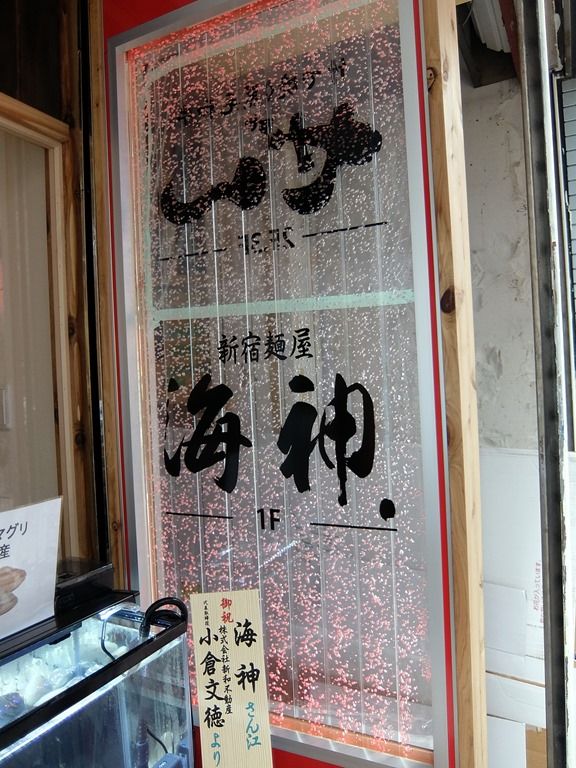 2F.3F
新宿麺屋
海神.
1F
御祝
海神さん江
株式会社新和不動産
代表取締役
小倉文徳より
マグリ
産